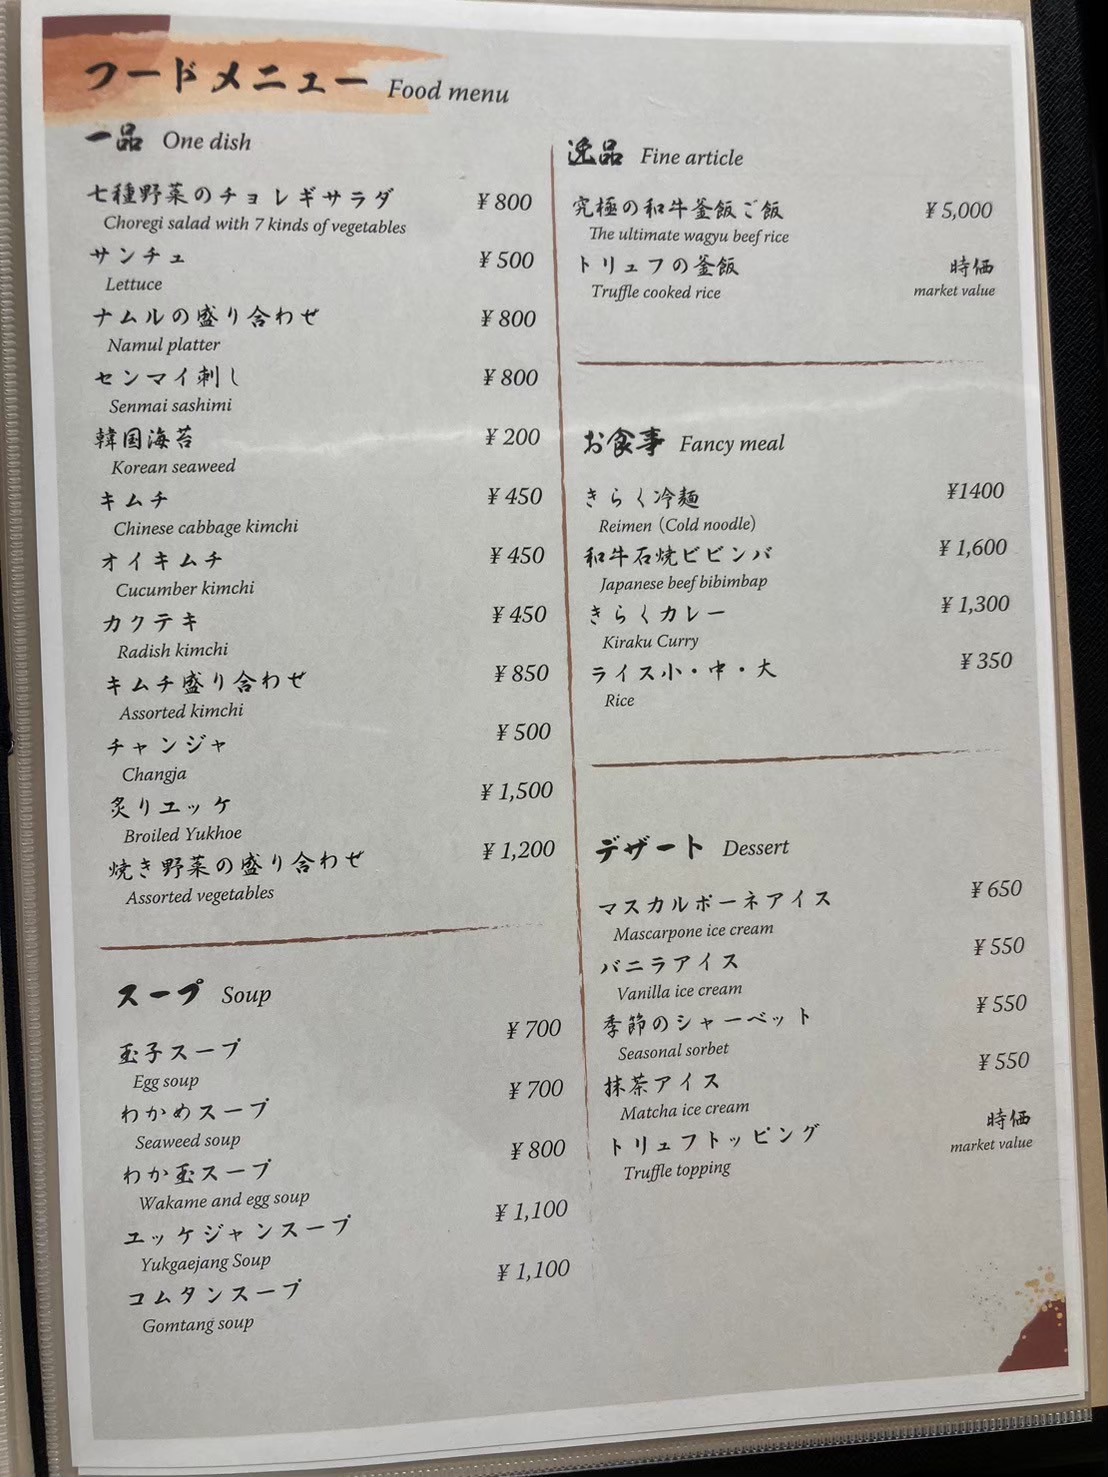 フードメニュー Food menu
一品 One dish
七種野菜のチョレギサラダ ¥800
Choregi salad with 7 kinds of vegetables
サンチュ ¥500
Lettuce
ナムルの盛り合わせ ¥800
Namul platter
センマイ刺し ¥800
Senmai sashimi
韓国海苔 ¥200
Korean seaweed
キムチ ¥450
Chinese cabbage kimchi
オイキムチ ¥450
Cucumber kimchi
カクテキ ¥450
Radish kimchi
キムチ盛り合わせ ¥850
Assorted kimchi
チャンジャ ¥500
Changja
炙りユッケ ¥1,500
Broiled Yukhoe
焼き野菜の盛り合わせ ¥1,200
Assorted vegetables
スープ Soup
玉子スープ ¥700
Egg soup
わかめスープ ¥700
Seaweed soup
わか玉スープ ¥800
Wakame and egg soup
ユッケジャンスープ ¥1,100
Yukgaejang Soup
コムタンスープ ¥1,100
Gomtang soup
逸品 Fine article
究極の和牛釜飯ご飯 ¥5,000
The ultimate wagyu beef rice
トリュフの釜飯 時価
Truffle cooked rice market value
お食事 Fancy meal
きらく冷麺 ¥1400
Reimen (Cold noodle)
和牛石焼ビビンバ ¥1,600
Japanese beef bibimbap
きらくカレー ¥1,300
Kiraku Curry
ライス小・中・大 ¥350
Rice
デザート Dessert
マスカルポーネアイス ¥650
Mascarpone ice cream
バニラアイス ¥550
Vanilla ice cream
季節のシャーベット ¥550
Seasonal sorbet
抹茶アイス ¥550
Matcha ice cream
トリュフトッピング 時価
Truffle topping market value